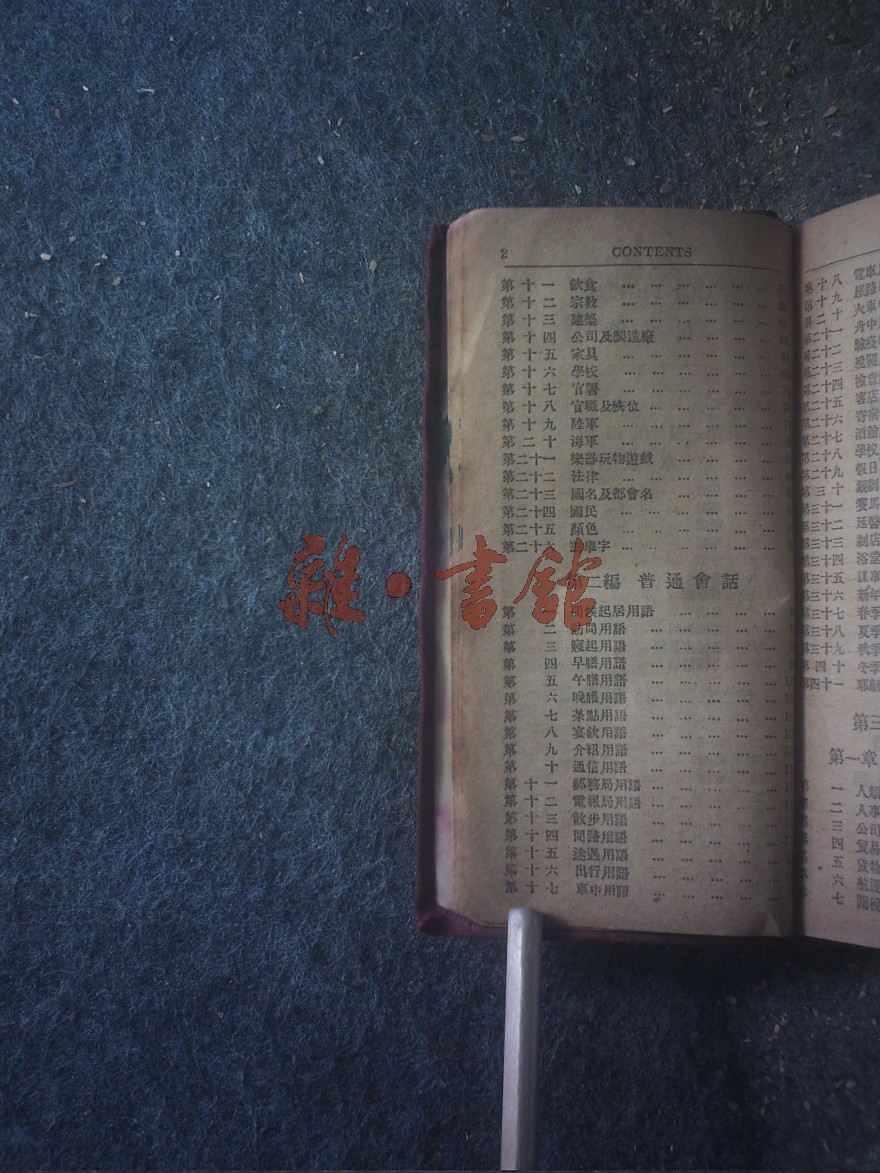 2 CONTENTS
第十一 飲食 … … … … … …
第十二 宗教 … … … … … …
第十三 建築 … … … … … …
第十四 公司及製造廠 … … … …
第十五 家具 … … … … …
第十六 學校 … … … … …
第十七 官署 … … … … …
第十八 官職及秩位 … … … … …
第十九 陸軍 … … … … …
第二十 海軍 … … … … …
第二十一 樂器玩物遊戲 … … … …
第二十二 法律 … … … … …
第二十三 國名及都會名 … … … …
第二十四 國民 … … … … …
第二十五 顏色 … … …
第二十六 單字 … … … … …
第二編 普通會話
第一 問候起居用語 … … … …
第二 訪問用語 … … … … …
第三 寢起用語 … … … … …
第四 早膳用語 … … … … …
第五 午膳用語 … … … … …
第六 晚膳用語 … … … … …
第七 茶點用語 … … … … …
第八 宴飲用語 … … … … …
第九 介紹用語 … … … … …
第十 通信用語 … … … … …
第十一 郵務局用語 … … … … …
第十二 電報局用語 … … … … …
第十三 散步用語 … … … … …
第十四 問路用語 … … … … …
第十五 途遇用語 … … … … …
第十六 出行用語 … … … … …
第十七 車中用語 … … … … …
雜·書館
第十八 電車
第十九
第二十 火車
第二十一 舟中
第二十二 驗疫
第二十三 稅關
第二十四 檢查
第二十五 客店
第二十六 寄宿
第二十七 酒館
第二十八 學校
第二十九 假日
第三十 觀劇
第三十一 賽馬
第三十二 延醫
第三十三 剃店
第三十四 浴堂
第三十五 謀事
第三十六 新年
第三十七 春季
第三十八 夏季
第三十九 秋季
第四十 冬季
第四十一 耶穌
第三
第一章
一 人類
二 人事
三 公司
四 貿易
五 貨物
六
七 關稅